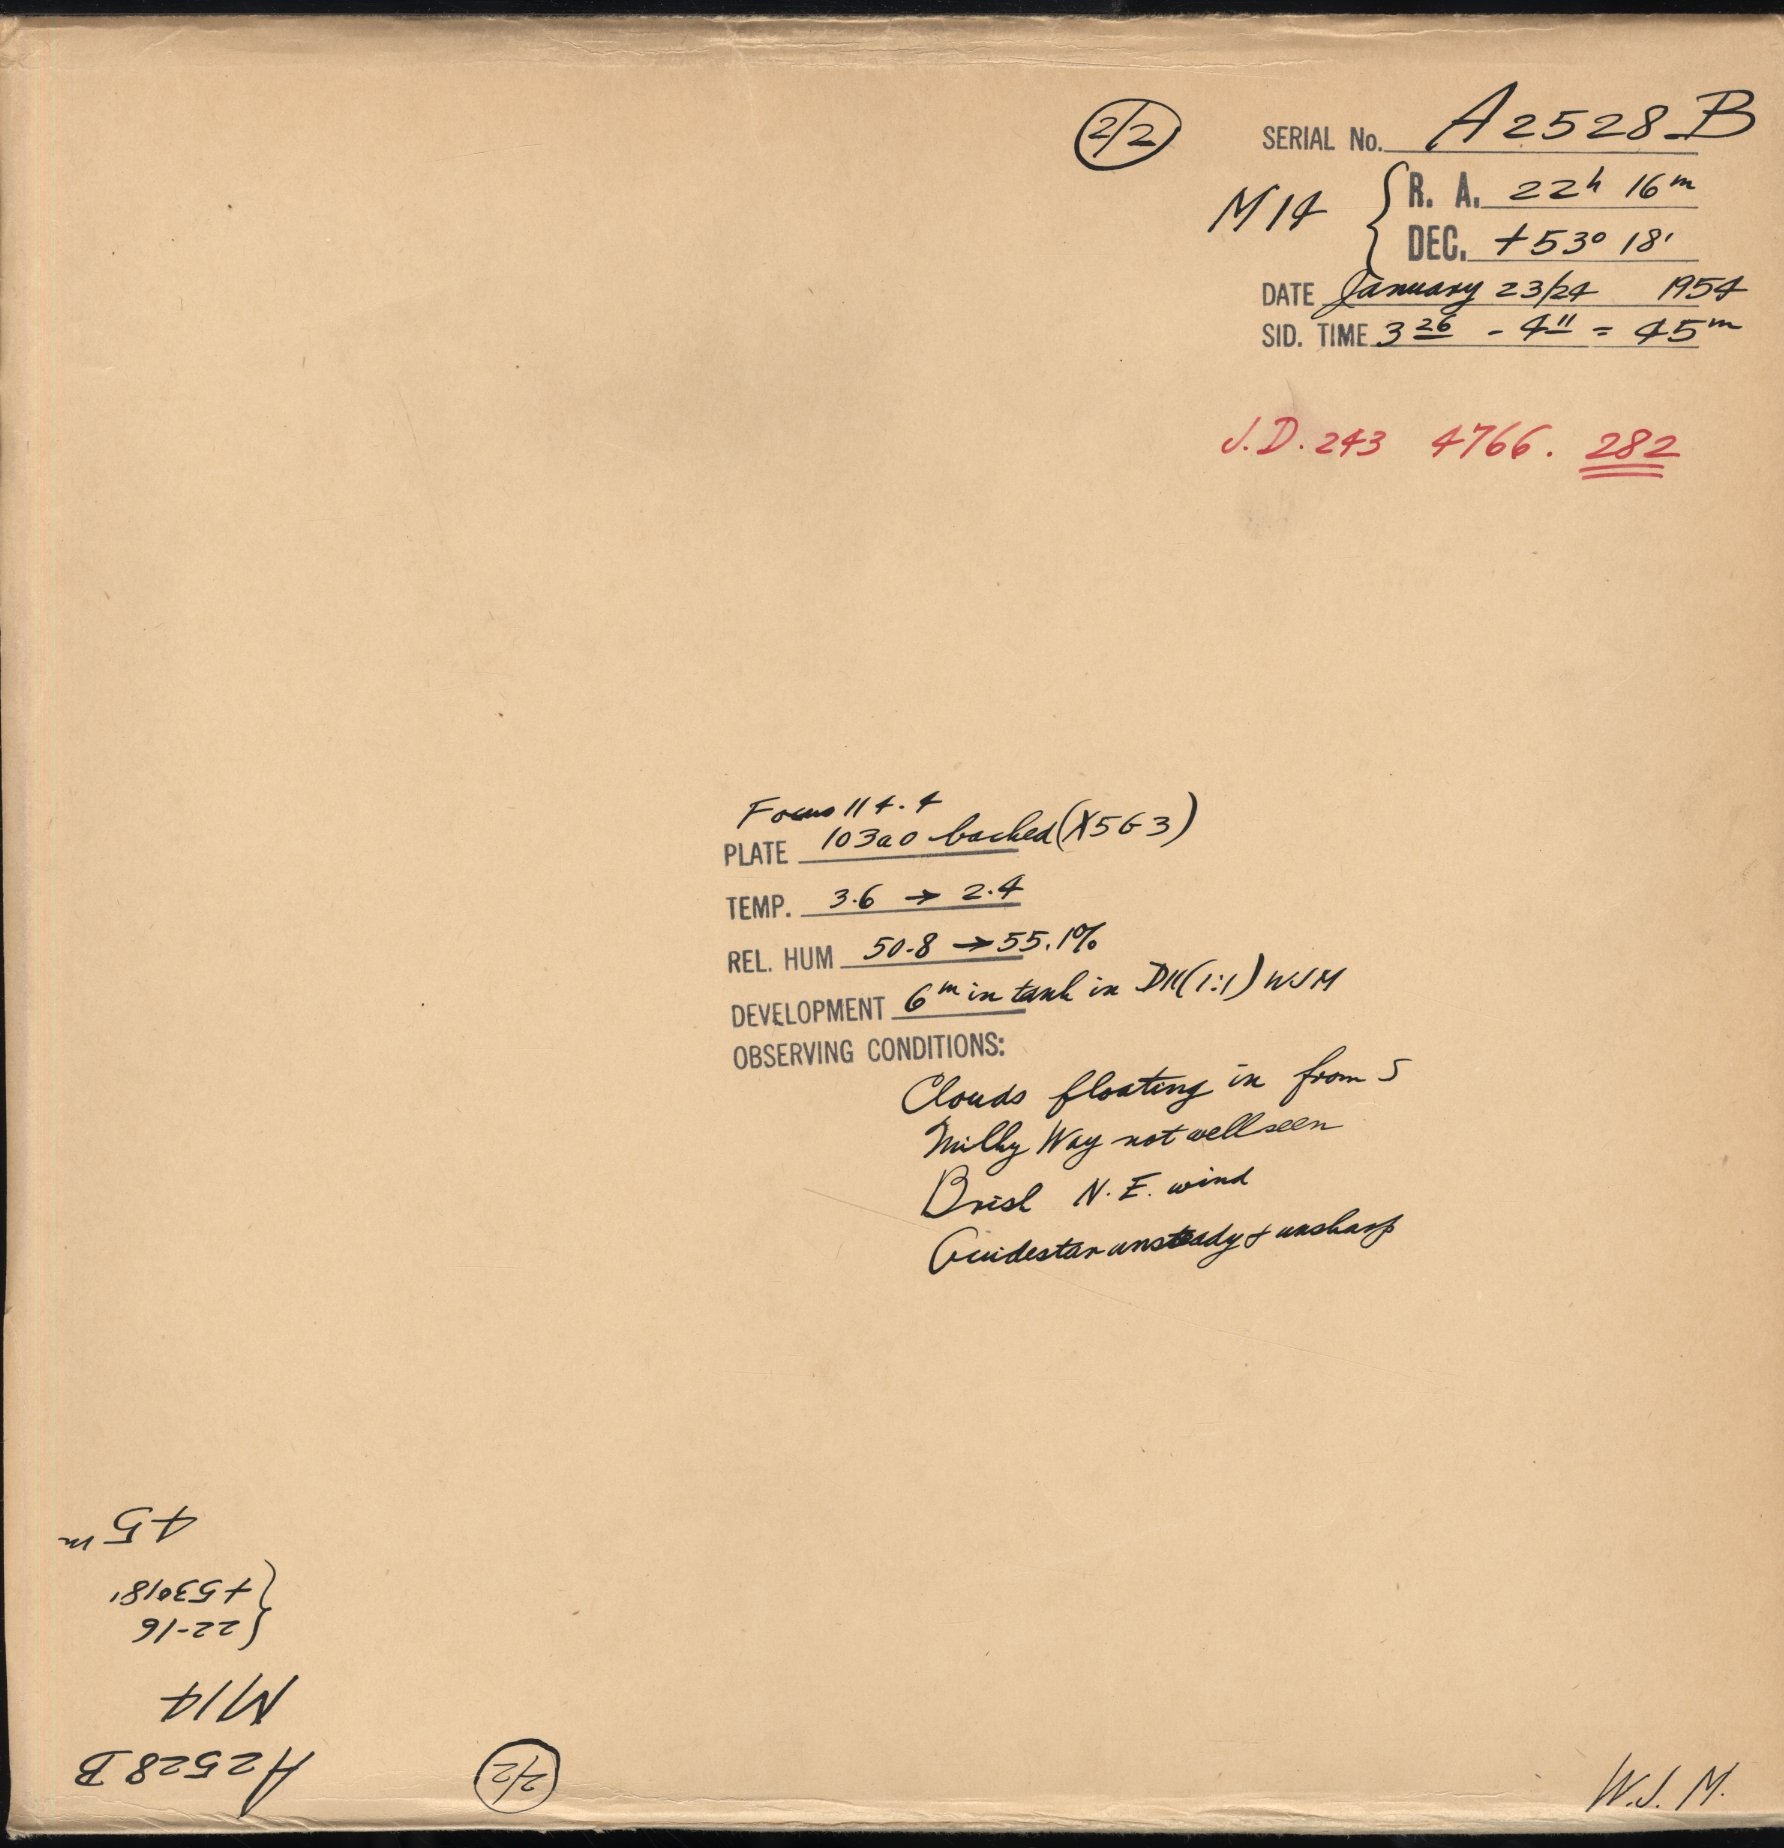 2/2
SERIAL No. A2528B
M14 { R. A. 22h 16m
DEC. +53° 18'
DATE January 23/24 1954
SID. TIME 3 26 - 4 11 = 45m
J.D. 243 4766. 282
Focus 114.4
PLATE 103a0 backed (X5G3)
TEMP. 3.6 → 2.4
REL. HUM 50.8 → 55.1%
DEVELOPMENT 6m in tank in DK(1:1) WJM
OBSERVING CONDITIONS:
Clouds floating in from S
Milky Way not well seen
Brisk N.E. wind
Guidestar unsteady & unsharp
W.J.M.
2/2
A2528B
M14
{ 22-16
+53°18'
45m